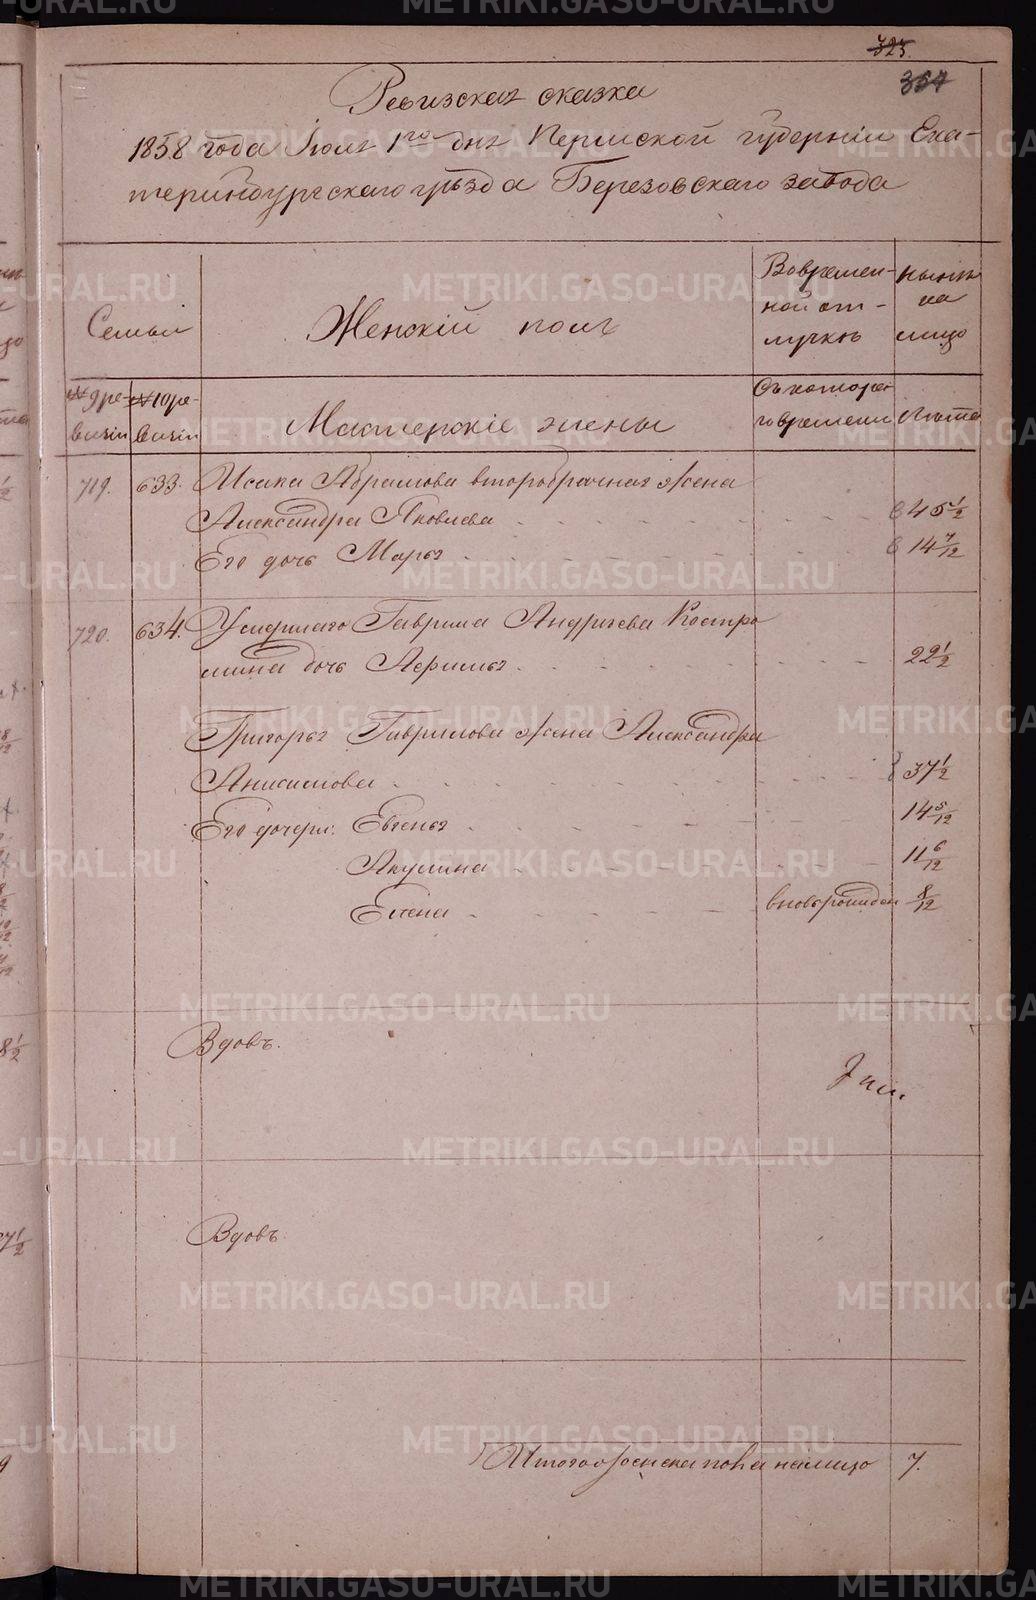 325.
354
Ревизская сказка
1858 года Июля 1го дня Пермской губерніи Ека-
теринбургскаго уѣзда Березовскаго завода
Семьи
Женскій полъ
Вовремен-
ной от-
лучкѣ
нынѣ
на
лицо
№ 9 ре-
визіи
№ 10 ре-
визіи
Мастерскіе жены
Съ котора-
го времени
Лѣта
719. 633. Исака Абрамова второбрачная жена
Александра Яковлева 45 1/2
Его дочь Марья 14 7/12
720. 634. Умершаго Гаврила Андреева Костро
мина дочь Афимья 22 1/2
Григорья Гаврилова жена Александра
Анисимова 37 1/2
Его дочери: Евгенья 14 5/12
Акулина 11 6/12
Елена вновьрожден 8/12
Вдовъ.
Вдовъ.
Итого женска пола налицо 7.
METRIKI.GASO-URAL.RU